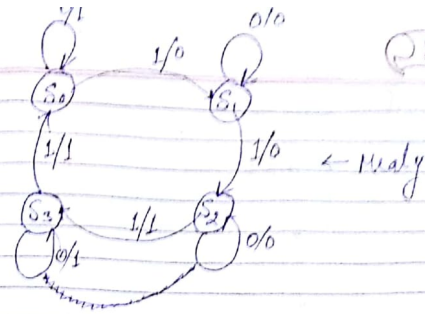 0/0
1/0
S0
S1
1/1
1/0
← mealy
S3
1/1
S2
0/1
0/0